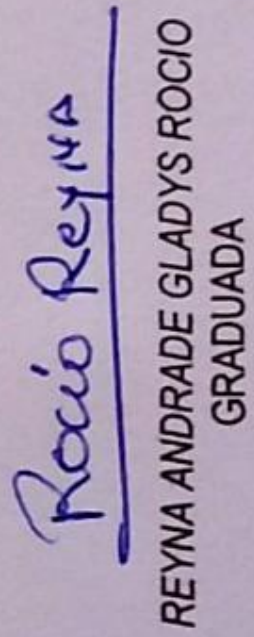 Rocío Reyna
REYNA ANDRADE GLADYS ROCIO
GRADUADA